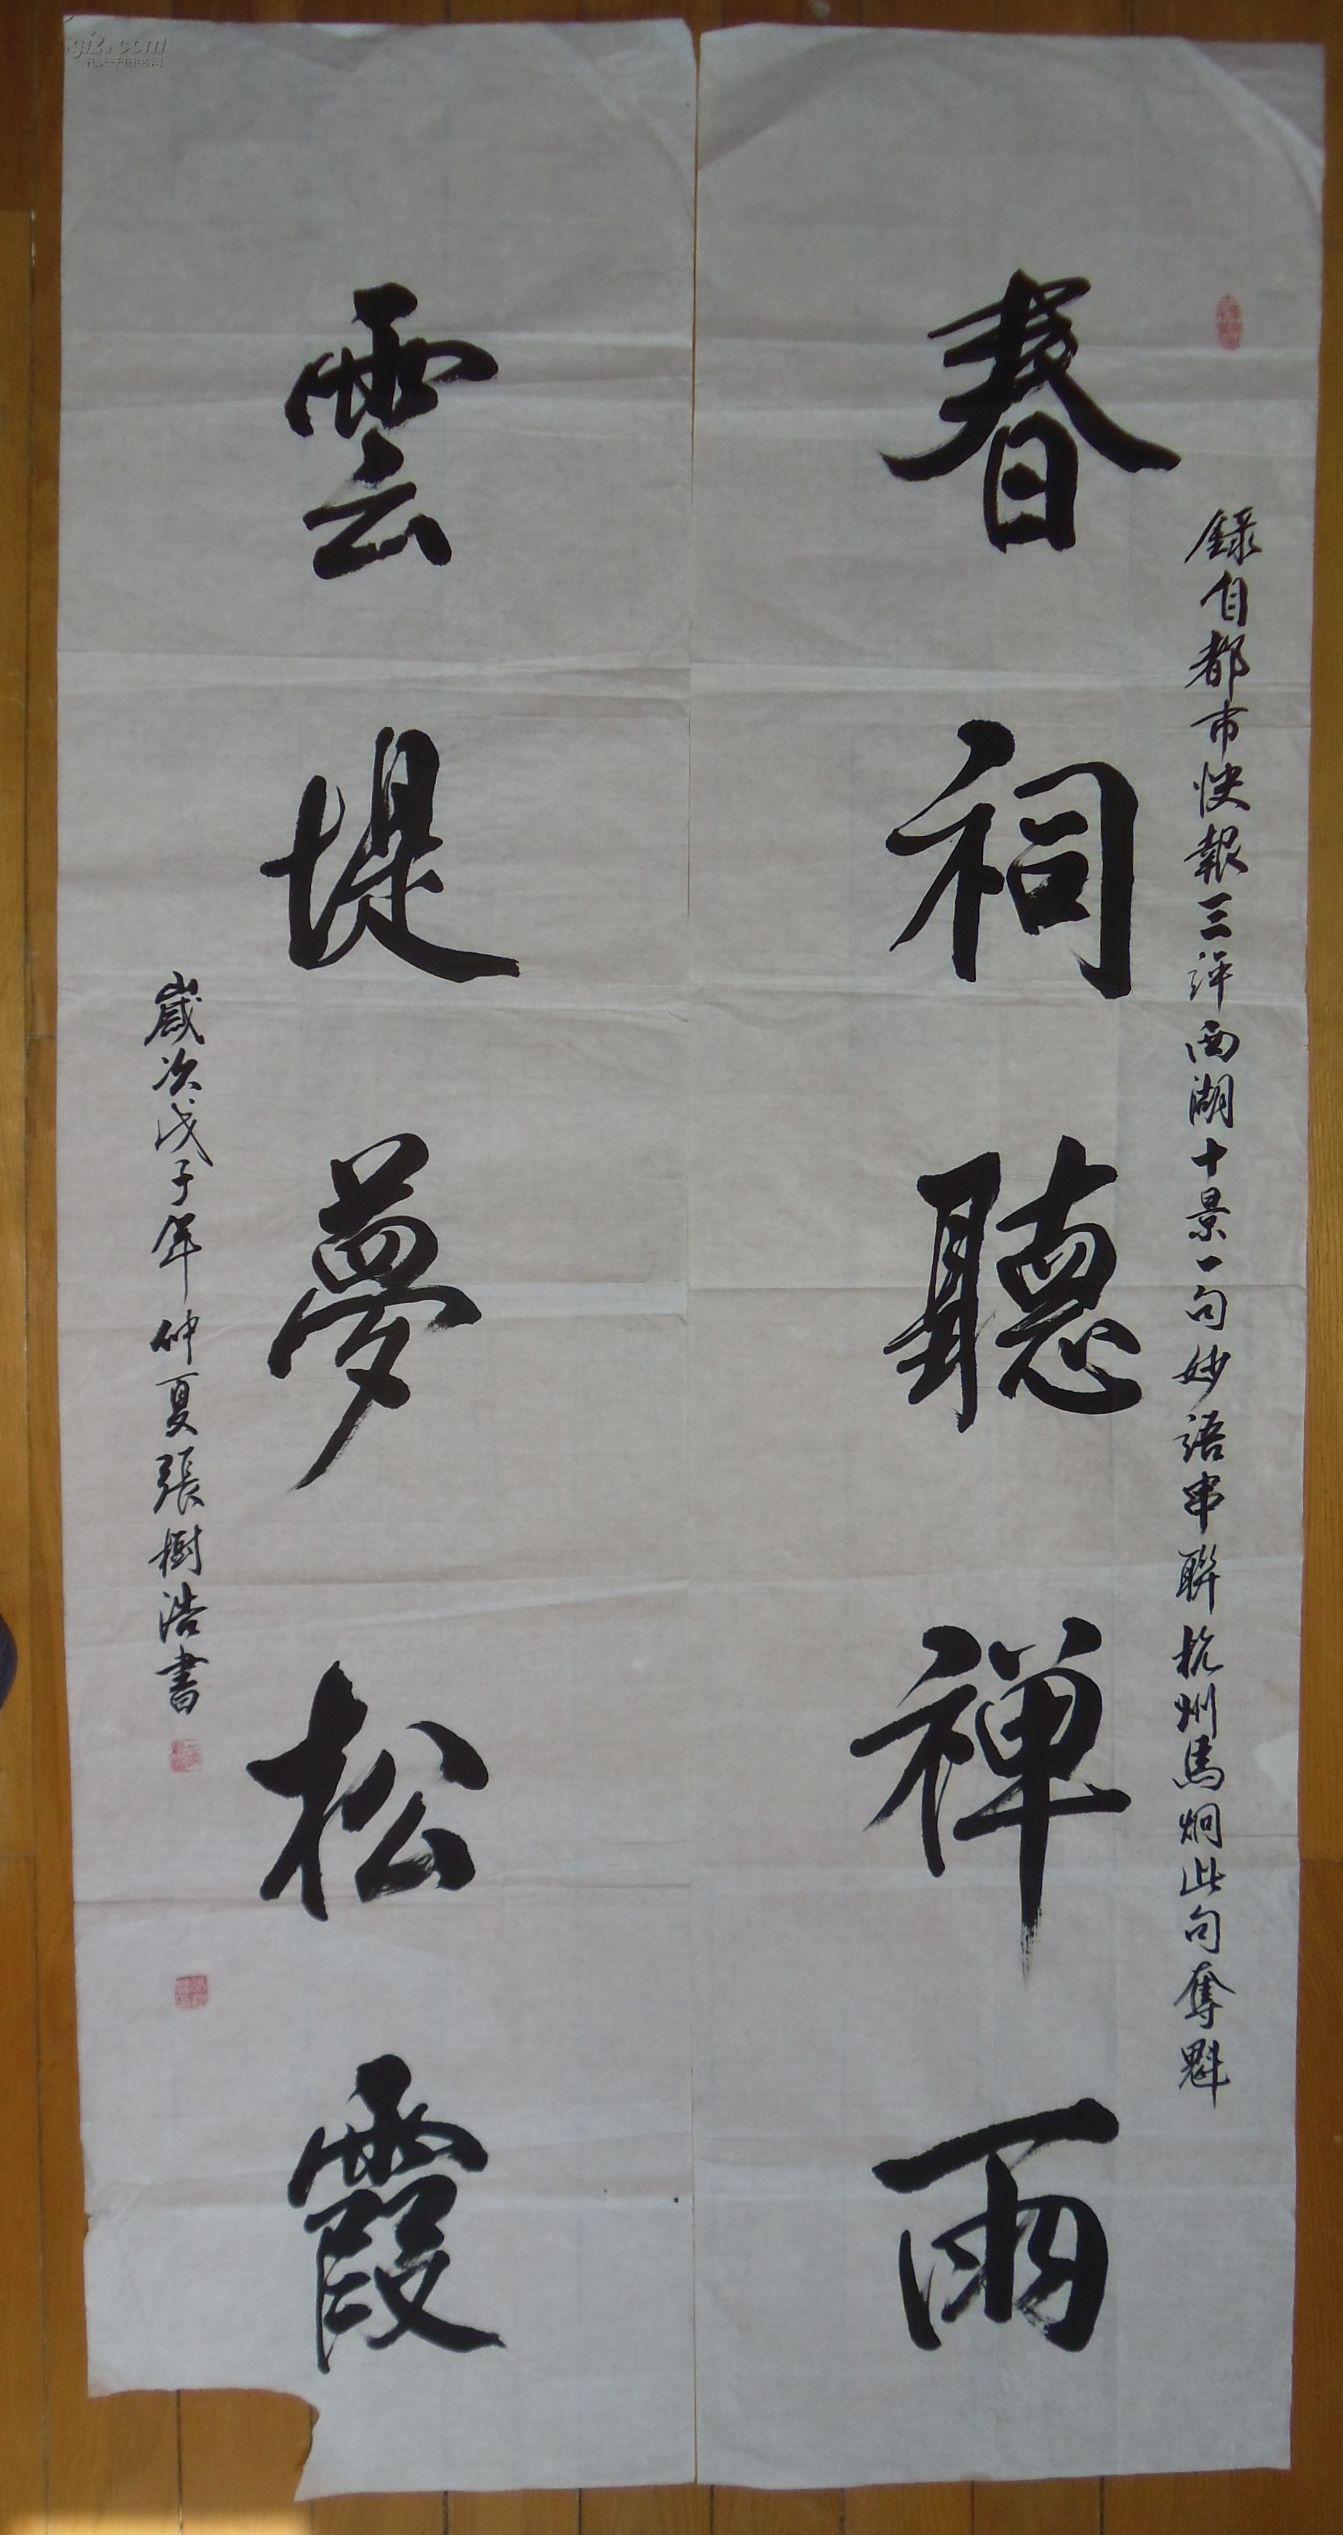 春祠聽禅雨
錄自都市快報三評西湖十景一句妙語串聯杭州馬炯此句奪魁
雲堤夢松霞
歲次戊子年仲夏張樹浩書